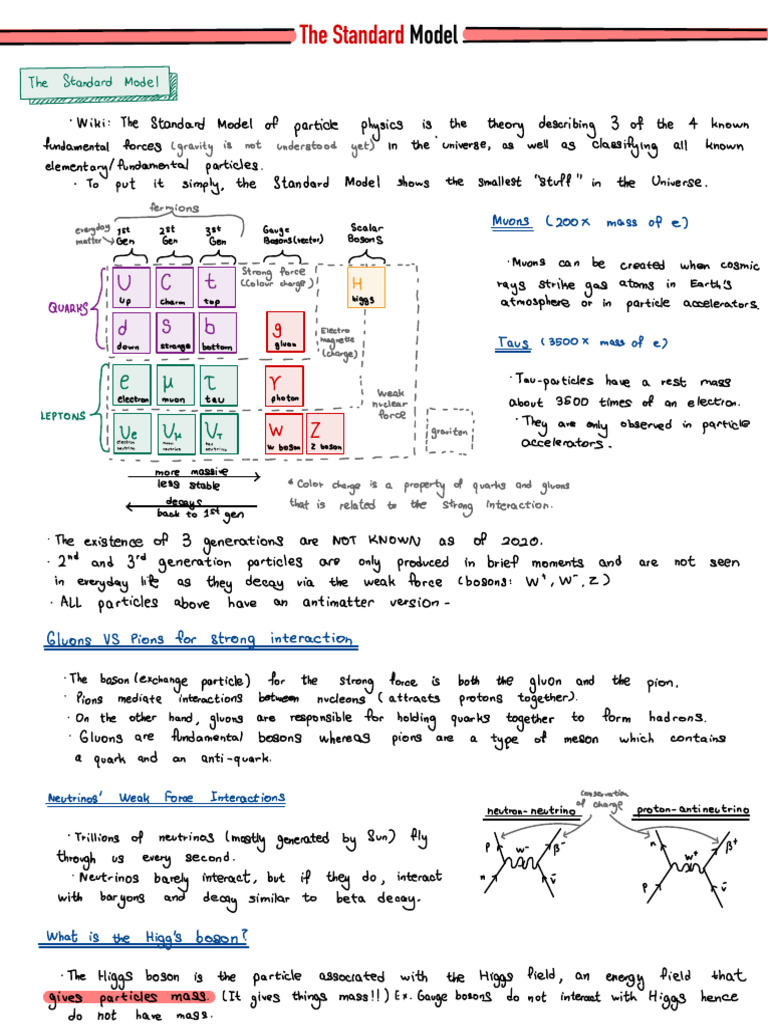 The Standard Model
The Standard Model
· Wiki: The Standard Model of particle physics is the theory describing 3 of the 4 known
fundamental forces (gravity is not understood yet) in the universe, as well as classifying all known
elementary/fundamental particles.
· To put it simply, the Standard Model shows the smallest "stuff" in the Universe.
fermions
everyday matter
1st Gen
2nd Gen
3rd Gen
Gauge Bosons (vector)
Scalar Bosons
QUARKS
U up
C charm
t top
Strong force (Colour charge)
H higgs
d down
S strange
b bottom
g gluon
Electro magnetic (charge)
LEPTONS
e electron
μ muon
τ tau
γ photon
Weak nuclear force
νe electron neutrino
νμ muon neutrino
ντ tau neutrino
W W boson
Z Z boson
graviton
more massive
less stable
decays
back to 1st gen
* Color charge is a property of quarks and gluons
that is related to the strong interaction.
Muons (200x mass of e)
· Muons can be created when cosmic
rays strike gas atoms in Earth's
atmosphere or in particle accelerators.
Taus (3500x mass of e)
· Tau-particles have a rest mass
about 3500 times of an electron.
· They are only observed in particle
accelerators.
· The existence of 3 generations are NOT KNOWN as of 2020.
· 2nd and 3rd generation particles are only produced in brief moments and are not seen
in everyday life as they decay via the weak force (bosons: W⁺, W⁻, Z)
· ALL particles above have an antimatter version -
Gluons VS Pions for strong interaction
· The boson (exchange particle) for the strong force is both the gluon and the pion.
· Pions mediate interactions between nucleons (attracts protons together).
· On the other hand, gluons are responsible for holding quarks together to form hadrons.
· Gluons are fundamental bosons whereas pions are a type of meson which contains
a quark and an anti-quark.
Neutrinos' Weak Force Interactions
· Trillions of neutrinos (mostly generated by Sun) fly
through us every second.
· Neutrinos barely interact, but if they do, interact
with baryons and decay similar to beta decay.
conservation of charge
neutron-neutrino
p W⁻ β⁻
n ν̄
proton-antineutrino
n W⁺ β⁺
p ν̄
What is the Higg's boson?
· The Higgs boson is the particle associated with the Higgs field, an energy field that
gives particles mass. (It gives things mass!!) Ex. Gauge bosons do not interact with Higgs hence
do not have mass.